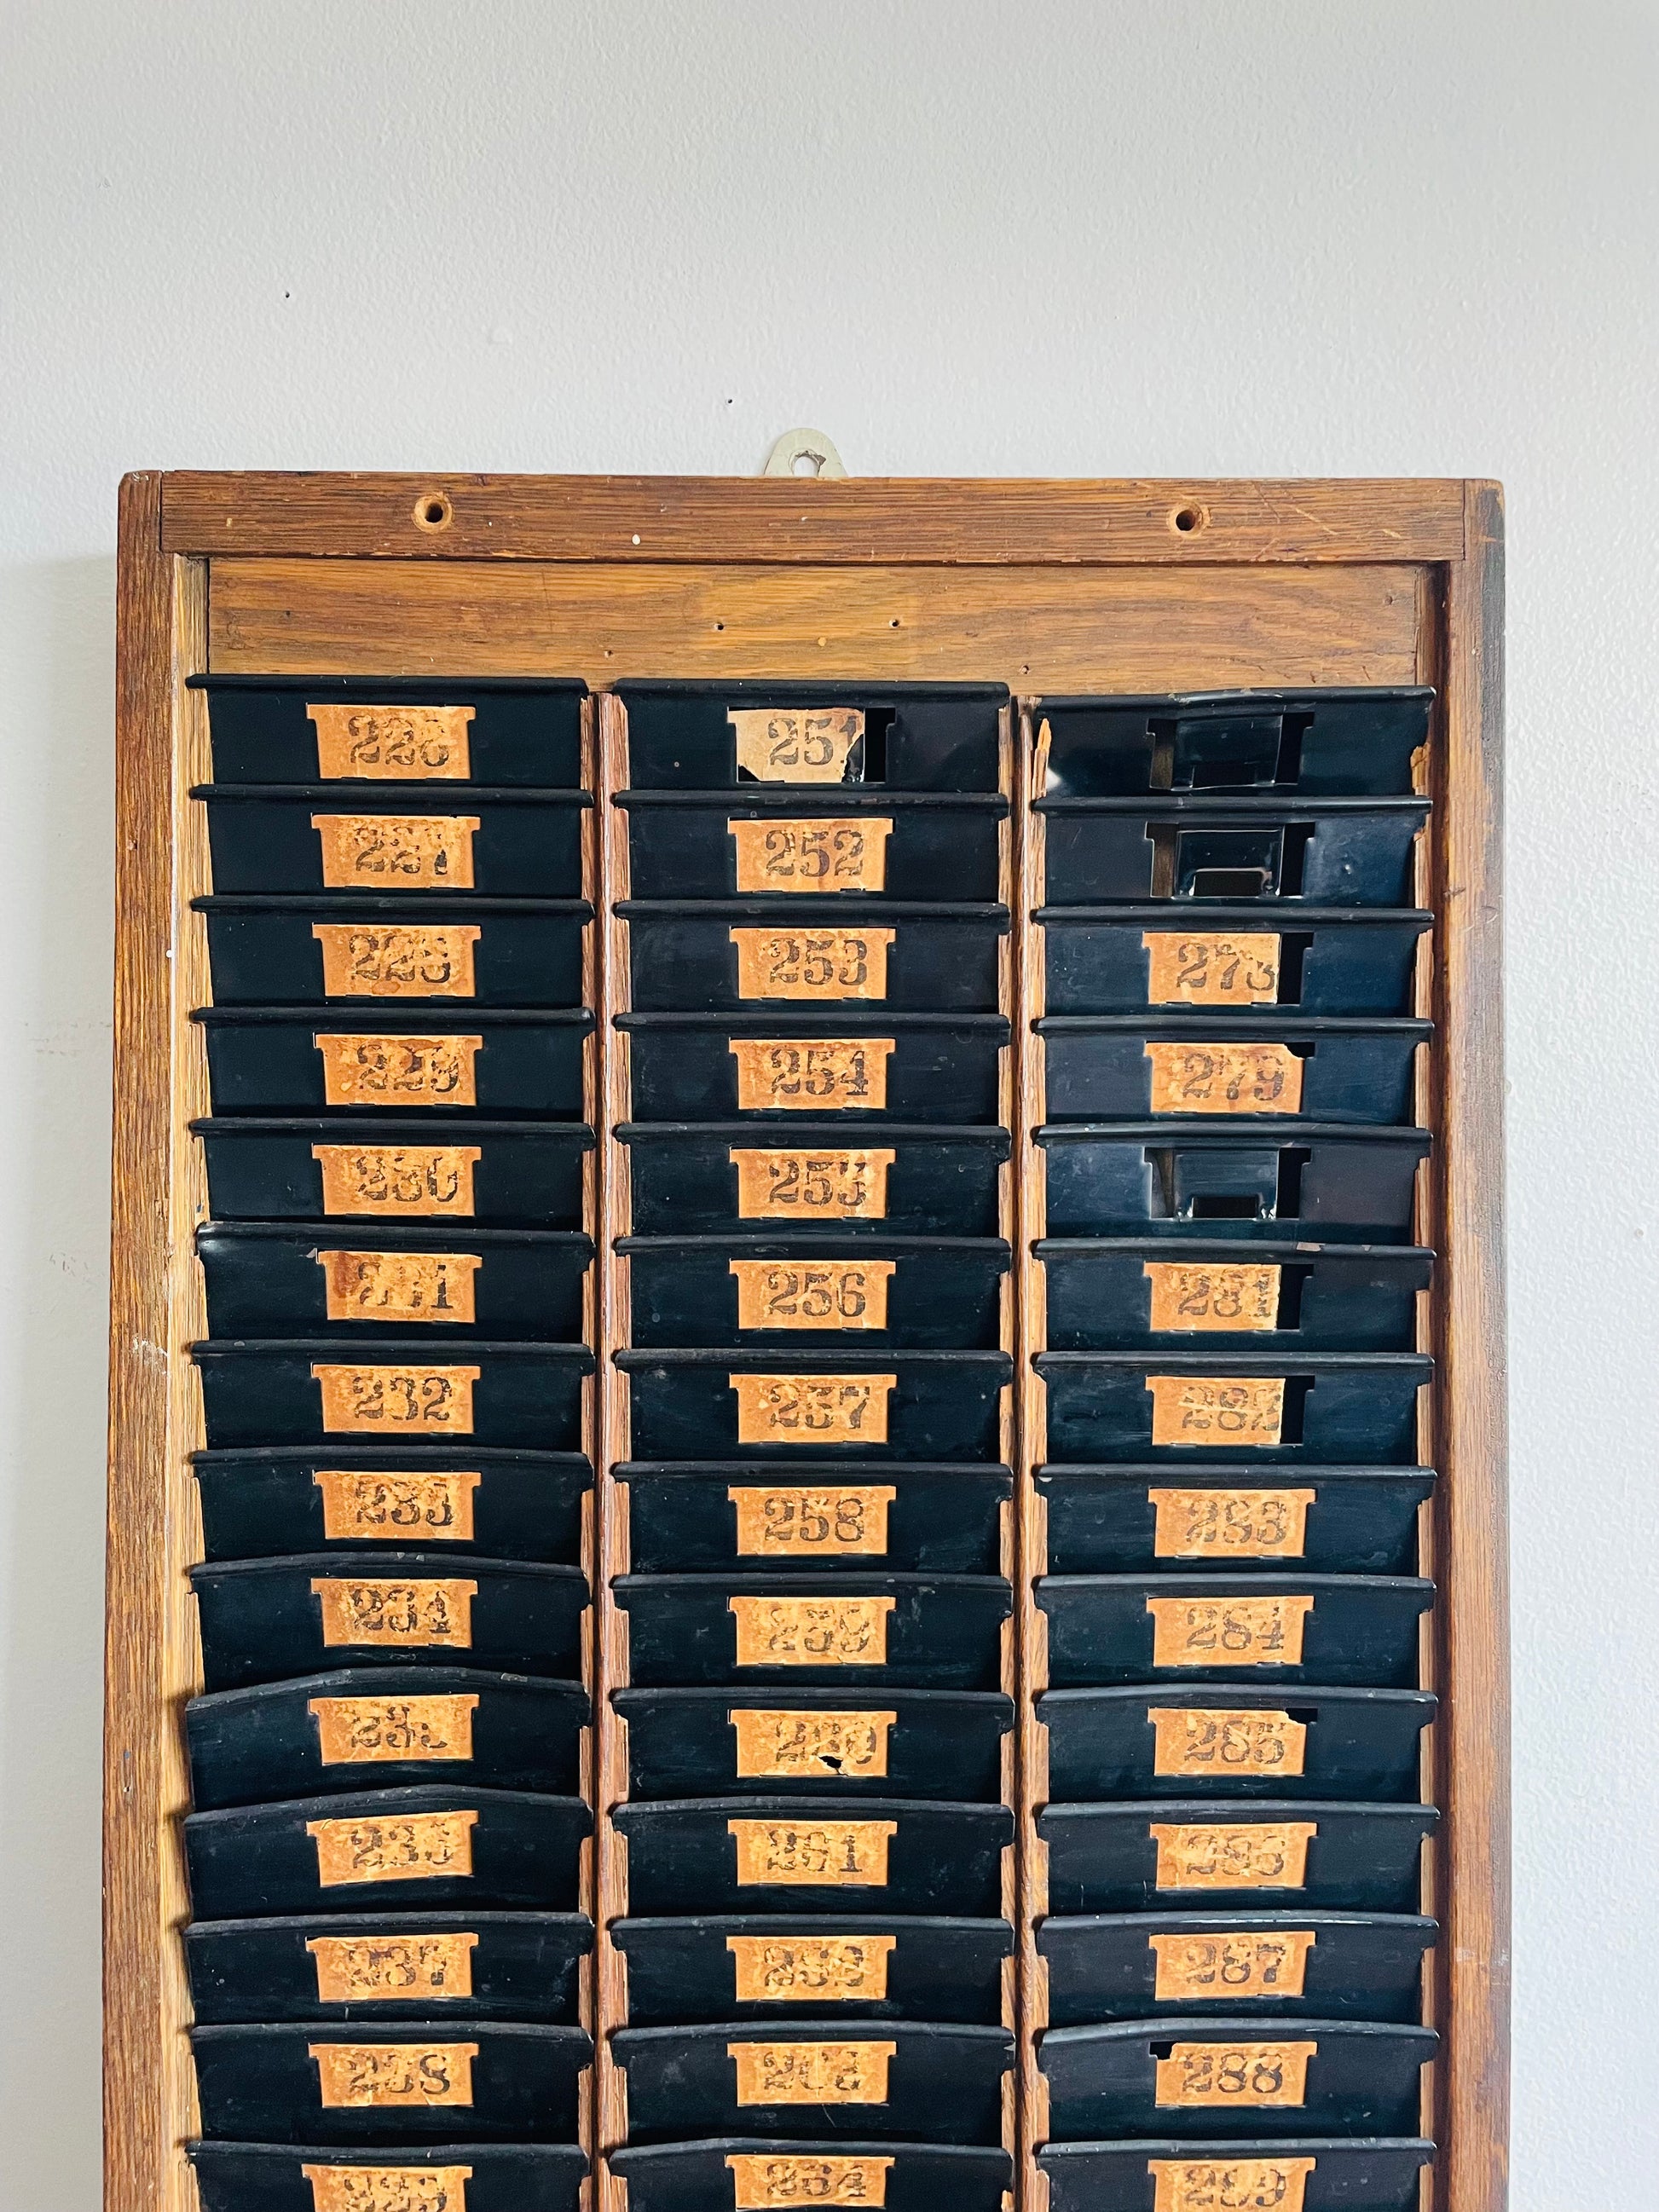 226 251
227 252
228 253 278
229 254 279
230 255
231 256 281
232 257 282
233 258 283
234 259 284
235 260 285
236 261 286
237 262 287
238 263 288
239 264 289